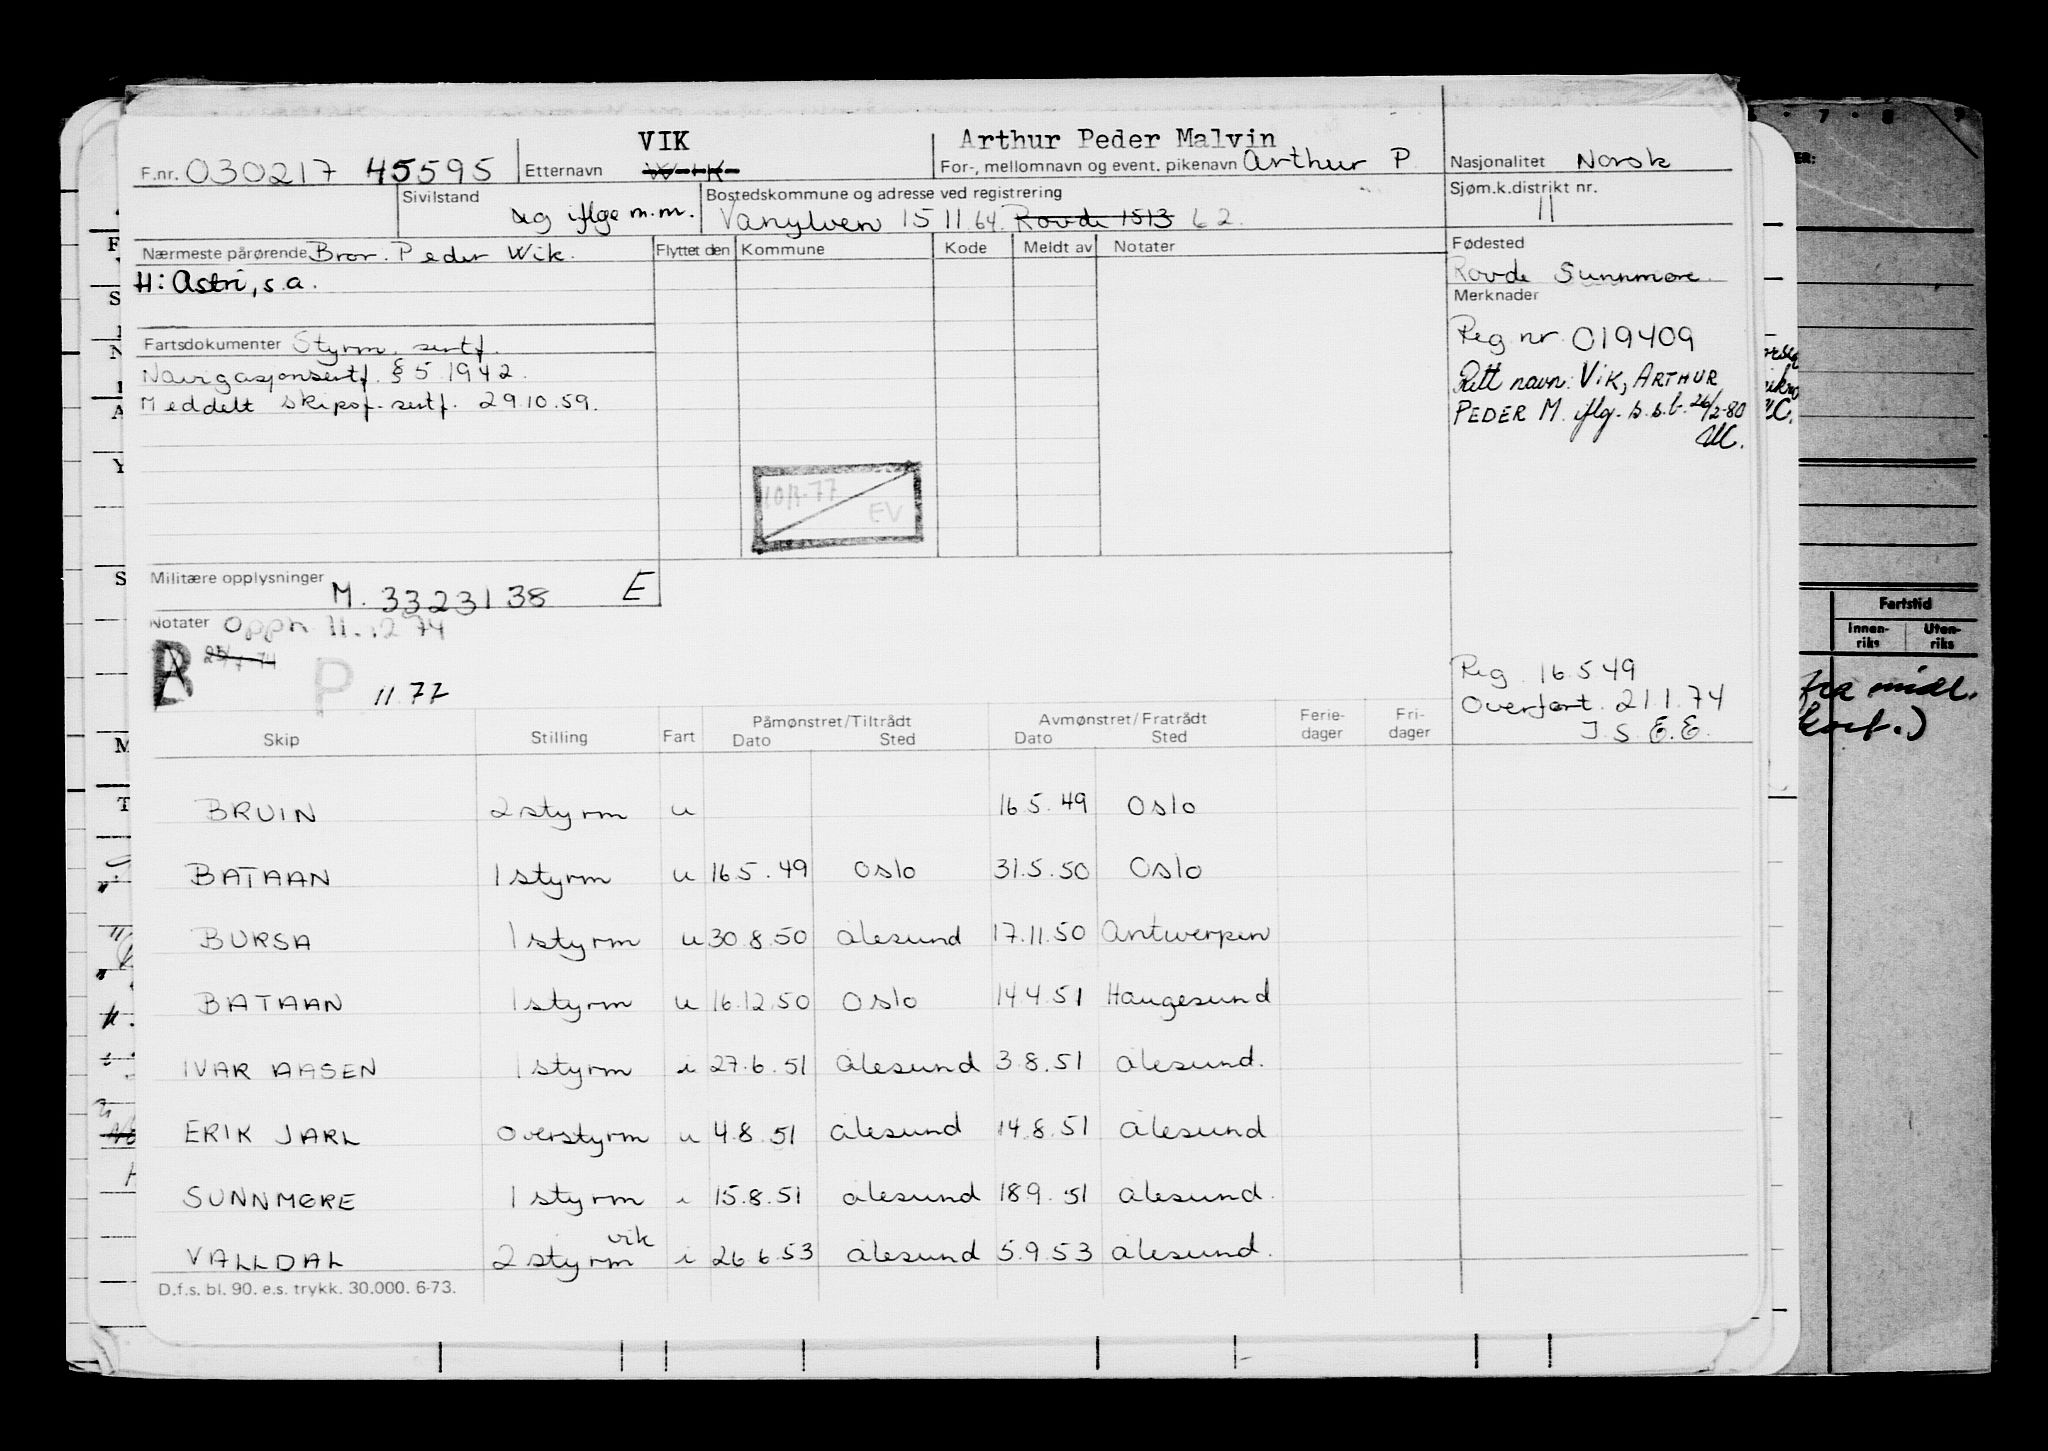 VIK Arthur Peder Malvin
F.nr. 030217 45595 Etternavn WIK For-, mellomnavn og event. pikenavn Arthur P. Nasjonalitet Norsk
Sivilstand sig iflge m.m. Bostedskommune og adresse ved registrering Sjøm.k.distrikt nr. 11
Vanylven 1511 64. Rovde 1513 62.
Nærmeste pårørende Bror. Peder Wik. Flyttet den Kommune Kode Meldt av Notater Fødested
H: Astri, s.a. Rovde Sunnmøre.
Merknader
Fartsdokumenter Styrm. sertf. Reg nr 019409
Navigasjonsertf. § 5 1942. Rett navn: VIK, ARTHUR
Meddelt skipsf. sertf. 29.10.59. PEDER M. iflg. s.s.b. 26/2-80
EV
Militære opplysninger M. 3323138 E
Notater Opph 11.12 74
B
P 11.77
Reg. 16.5.49
Overført 21.1.74
J.S.E.E.
Påmønstret/Tiltrådt Avmønstret/Fratrådt Ferie- Fri-
Skip Stilling Fart Dato Sted Dato Sted dager dager
BRUIN 2 styrm u 16.5.49 Oslo
BATAAN 1 styrm u 16.5.49 Oslo 31.5.50 Oslo
BURSA 1 styrm u 30.8.50 Ålesund 17.11.50 Antwerpen
BATAAN 1 styrm u 16.12.50 Oslo 14.4.51 Haugesund
IVAR AASEN 1 styrm i 27.6.51 Ålesund 3.8.51 Ålesund.
ERIK JARL Overstyrm u 4.8.51 Ålesund 14.8.51 Ålesund
SUNNMØRE 1 styrm i 15.8.51 Ålesund 18.9.51 Ålesund.
vik
VALLDAL 2 styrm i 26.6.53 Ålesund 5.9.53 Ålesund.
D.f.s. bl. 90. e.s. trykk. 30.000. 6-73.
Fartstid
Innen- Uten-
riks riks
fra midl.
kort.)